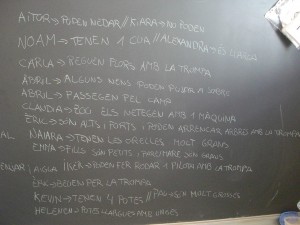 AITOR→PODEN NEDAR//KIARA→NO PODEN
NOAM→TENEN 1 CUA//ALEXANDRA→ÉS LLARGA
CARLA→REGUEN FLORS AMB LA TROMPA
APRIL→ALGUNS NENS PODEN PUJAR A SOBRE
ABRIL→PASSEGEN PEL CAMP
CLAUDIA→ZOO ELS NETEGEN AMB 1 MÀQUINA
ÈRIC→SÓN ALTS I FORTS I PODEN ARRENCAR ARBRE AMB LA TROMPA
NAIARA→TENEN LES ORELLES MOLT GRANS
EMMA→FILLS SÓN PETITS I PARE/MARE SÓN GRANS
IKER→PODEN FER RODAR 1 PILOTA AMB LA TROMPA
ÈRIC→BEUEN PER LA TROMPA
KEVIN→TENEN 4 POTES // PAU→SÓN MOLT GRANS
HELENA→POTES LLARGUES AMB UNGLES